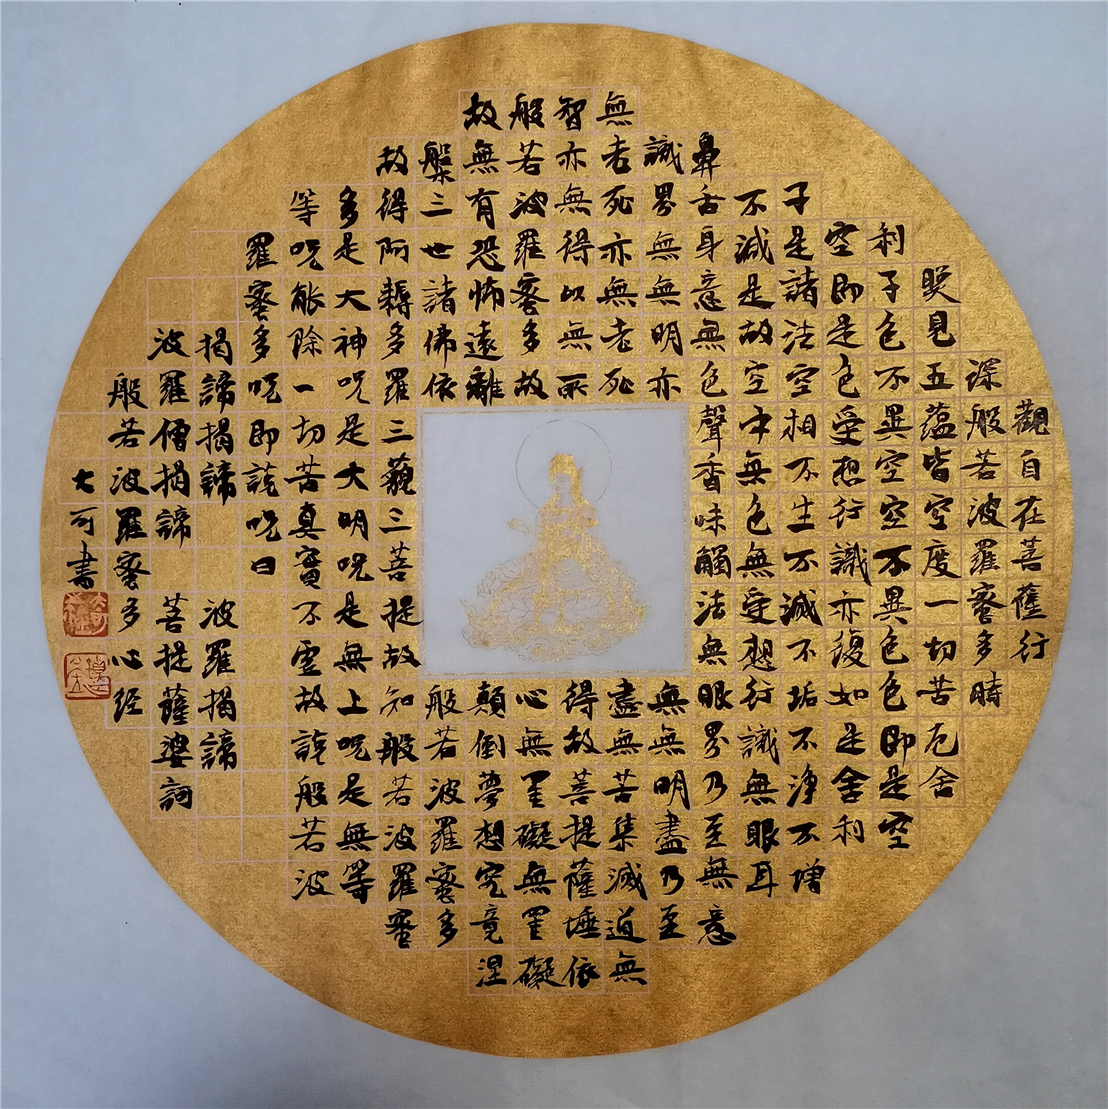 觀自在菩薩行
深般若波羅蜜多時
照見五蘊皆空度一切苦厄舍
利子色不異空空不異色色即是空
空即是色受想行識亦復如是舍利
子是諸法空相不生不滅不垢不淨不增
不減是故空中無色無受想行識無眼耳
鼻舌身意無色聲香味觸法無眼界乃至無意
識界無無明亦無無明盡乃至
無老死亦無老死盡無苦集滅道無
智亦無得以無所得故菩提薩埵依
般若波羅蜜多故心無罣礙無罣礙
故無有恐怖遠離顛倒夢想究竟涅
槃三世諸佛依般若波羅蜜多
故得阿耨多羅三藐三菩提故知般若波羅蜜
多是大神咒是大明咒是無上咒是無等
等咒能除一切苦真實不虛故說般若波
羅蜜多咒即說咒曰
揭諦揭諦 波羅揭諦
波羅僧揭諦 菩提薩婆訶
般若波羅蜜多心经
大可書